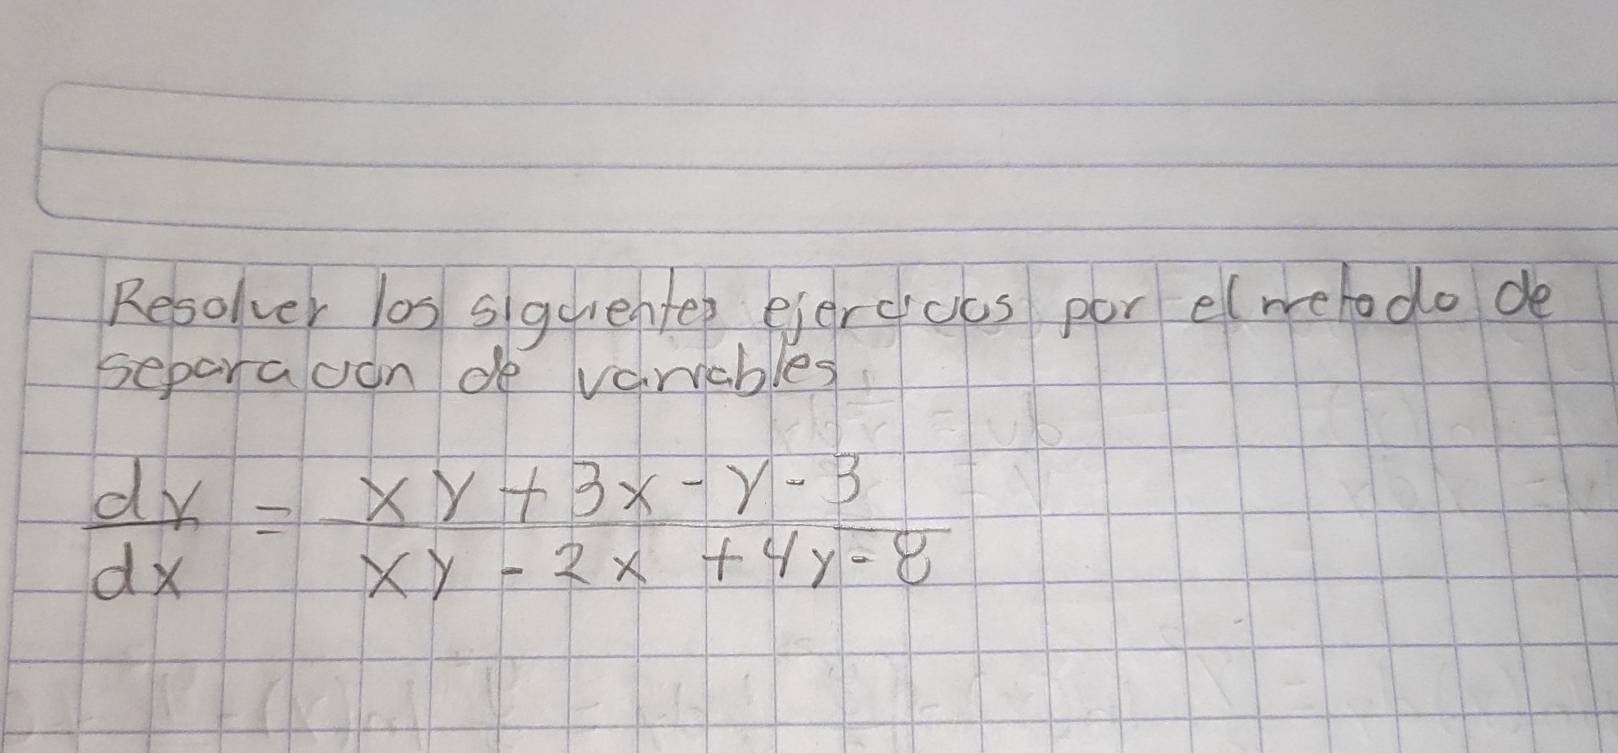 Resolver los siguientes ejercicios por el metodo de
separacion de variables
dy/dx = (xy + 3x - y - 3)/(xy - 2x + 4y - 8)